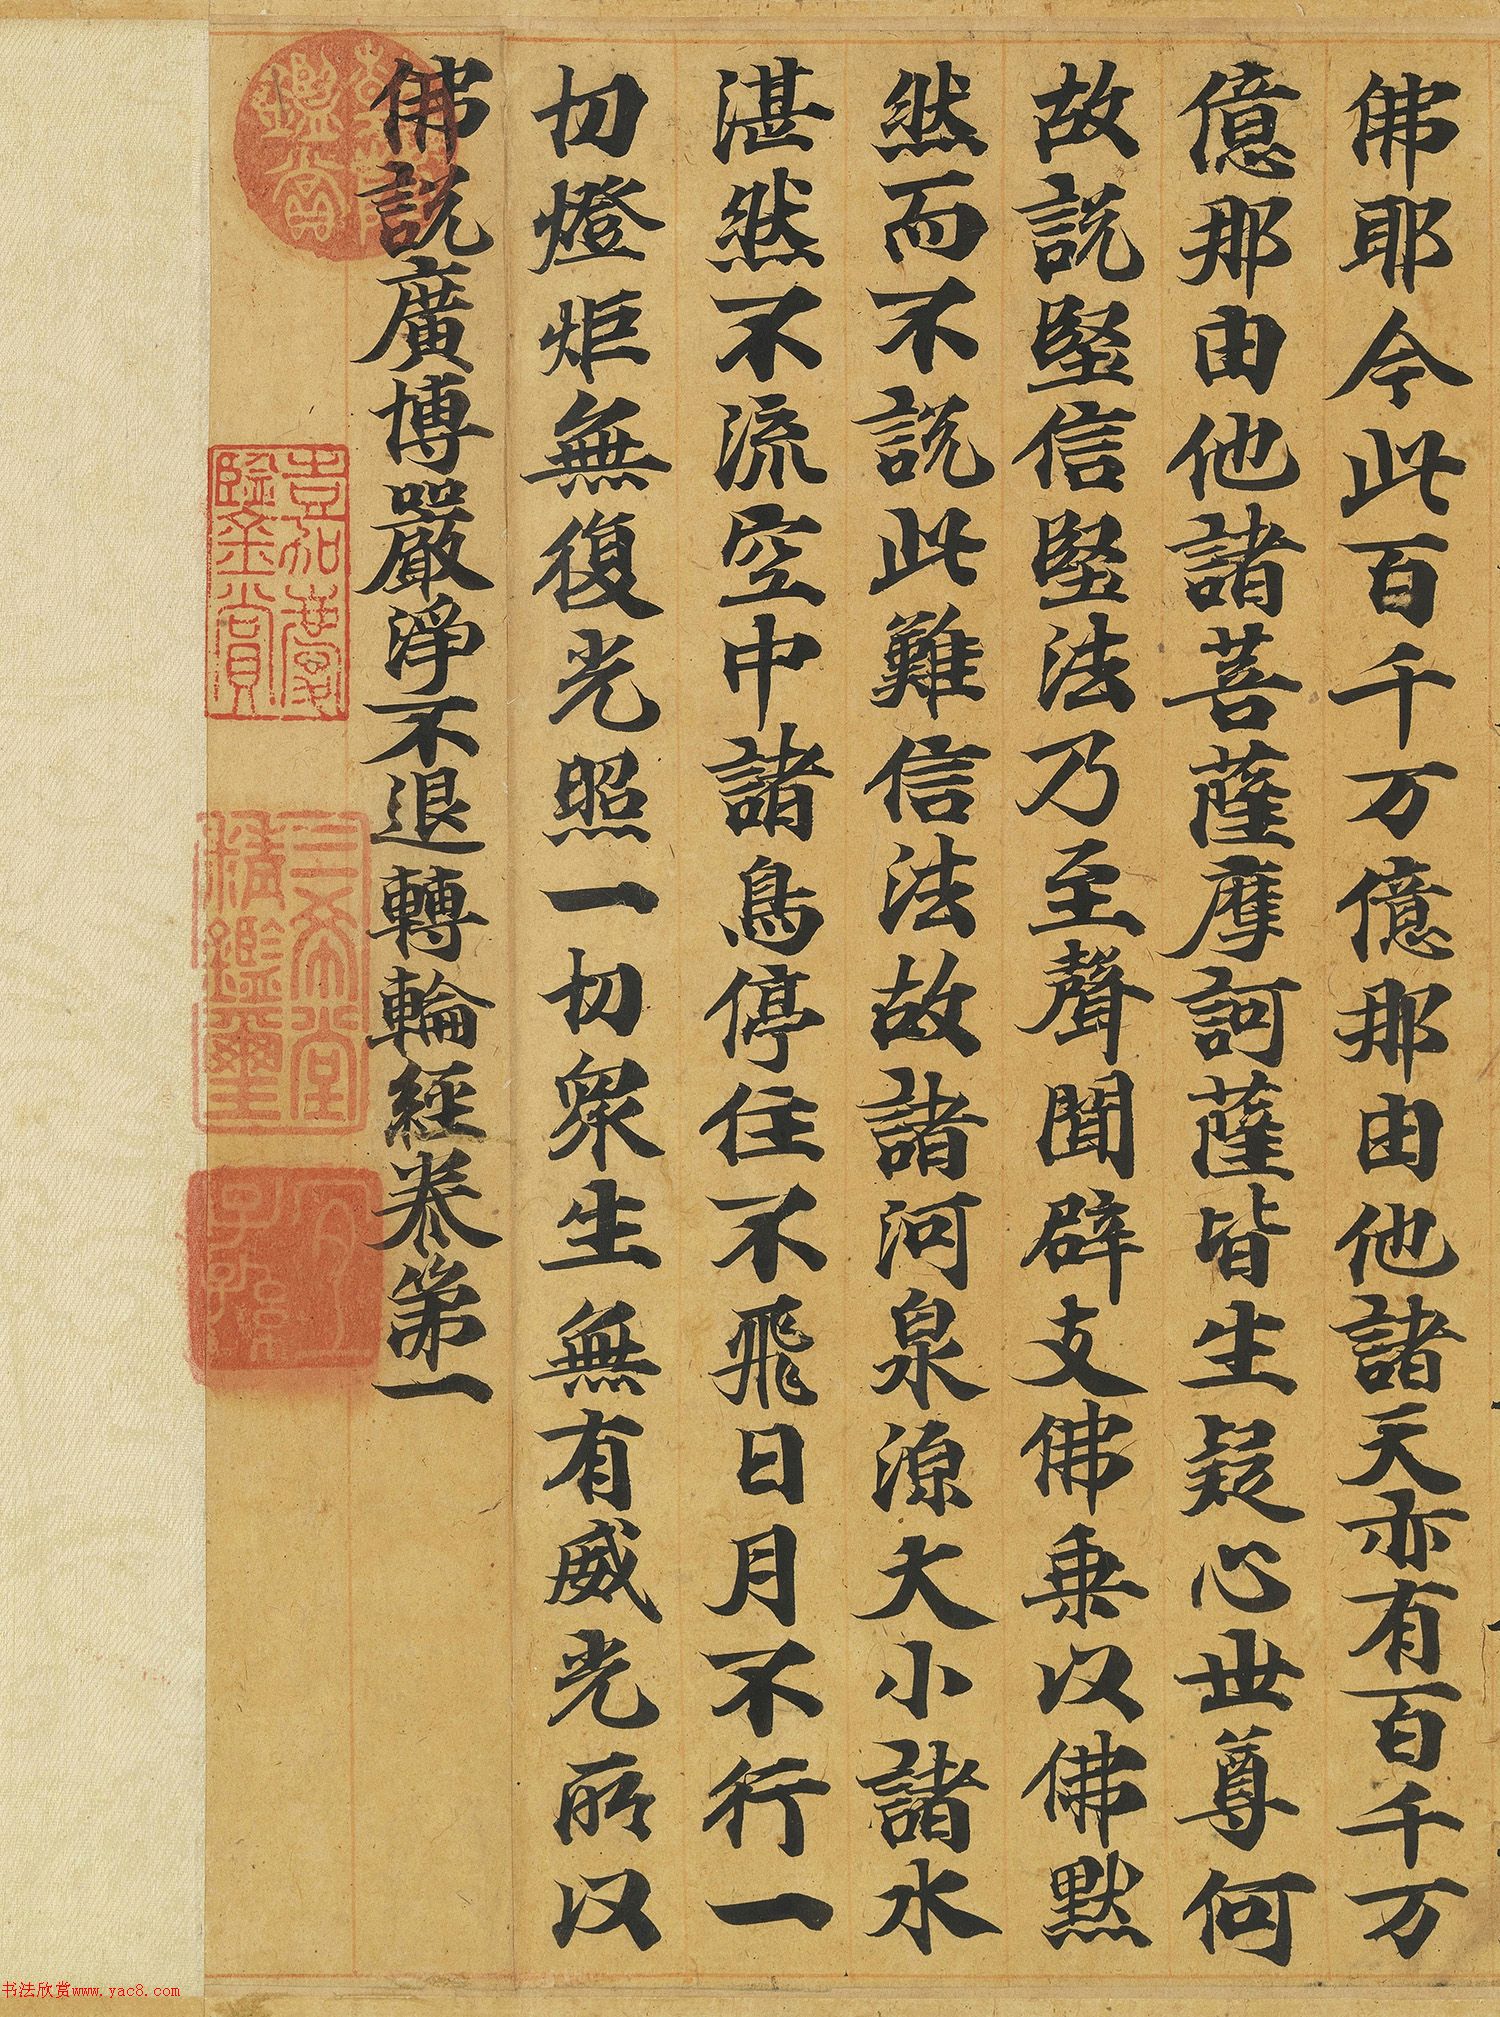 佛耶今此百千万億那由他諸天亦有百千万
億那由他諸菩薩摩訶薩皆生疑心世尊何
故説堅信堅法乃至聲聞辟支佛乗以佛黙
然而不説此難信法故諸河泉源大小諸水
湛然不流空中諸鳥停住不飛日月不行一
切燈炬無復光照一切衆生無有威光所以
佛説廣博嚴淨不退轉輪經卷第一
嘉慶鑒賞
三希堂精鑑璽
宜子孫
书法欣赏www.yac8.com